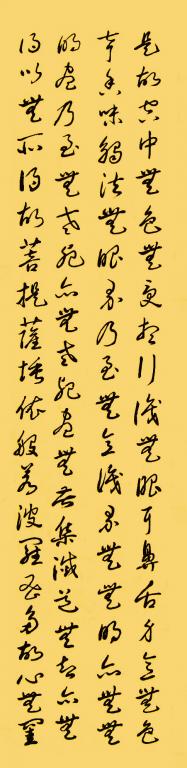 是故空中無色無受想行識無眼耳鼻舌身意無色
聲香味觸法無眼界乃至無意識界無無明亦無無
明盡乃至無老死亦無老死盡無苦集滅道無智亦無
得以無所得故菩提薩埵依般若波羅蜜多故心無罣